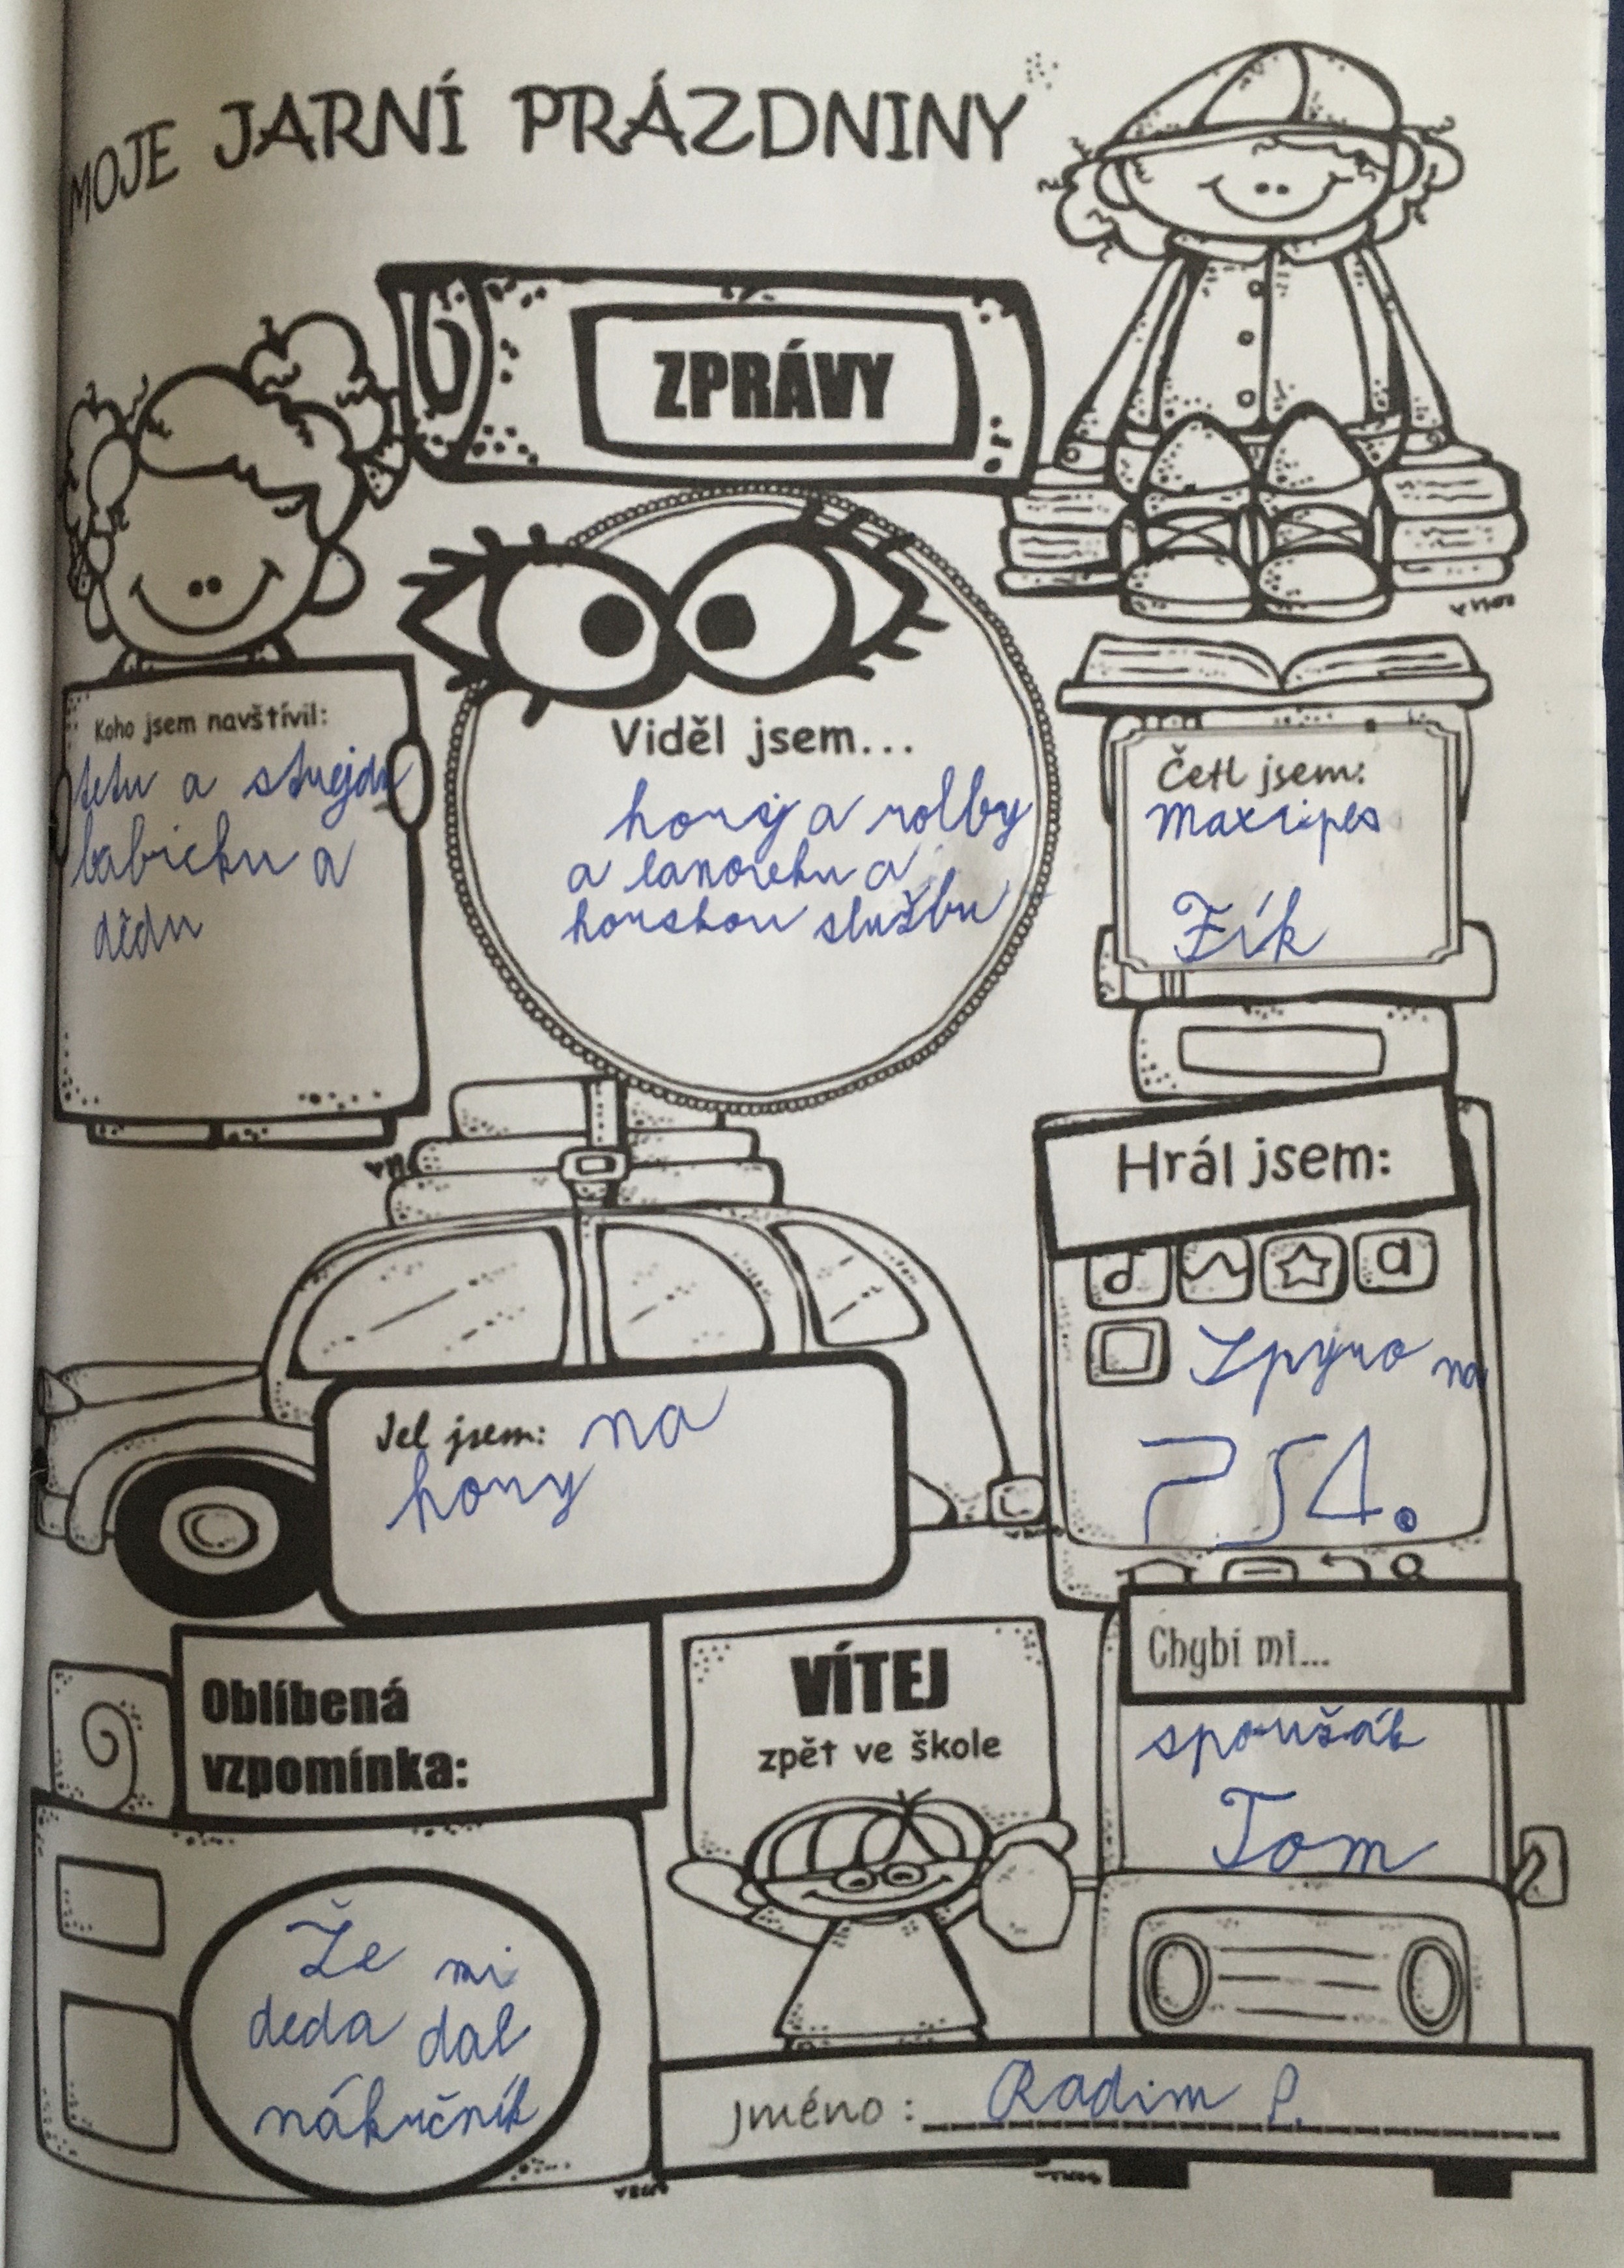 MOJE JARNÍ PRÁZDNINY
ZPRÁVY
Koho jsem navštívil:
tetu a strejdu
babicku a
dědu
Viděl jsem...
hory a rolby
a lanovku a
horskou službu
Četl jsem:
Maxipes
Fík
Hrál jsem:
a
Spyro na
PS4.
Jel jsem: na
hory
Oblíbená
vzpomínka:
Že mi
deda dal
nákrčník
VÍTEJ
zpět ve škole
Chybí mi...
spoužák
Tom
Jméno: Radim P.